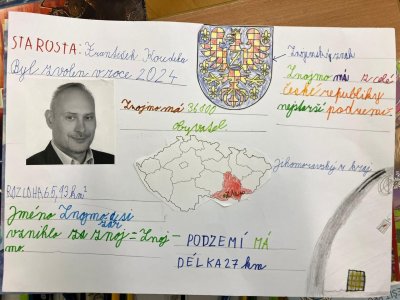 STAROSTA: František Koudela
Byl zvolen v roce 2024
Znojemský znak
Znojmo má z celé
české republiky
nejdelší podzemí.
Znojmo má 34100
obyvatel.
Jihomoravský kraj
ROZLOHA 65,93 km²
Jméno Znojmo asi
vzniklo za znoj = Znoj-
mo.
PODZEMÍ MÁ
DÉLKA 27 km